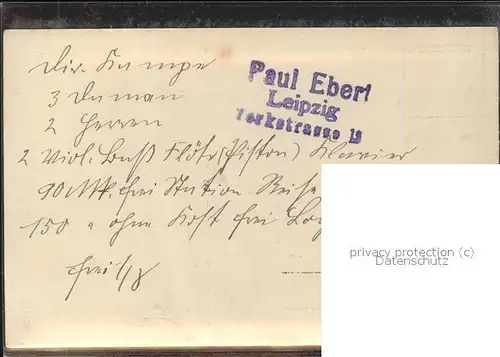 Dir. Kumpe
3 Damen
2 Herren
2 Viol. Baß Flöte (Piston) Klavier
90 Mk. frei Station Reise
150 " ohne Kost frei Log
frei 1/8
Paul Ebert
Leipzig
Yorkstrasse 19
privacy protection (c)
Datenschutz